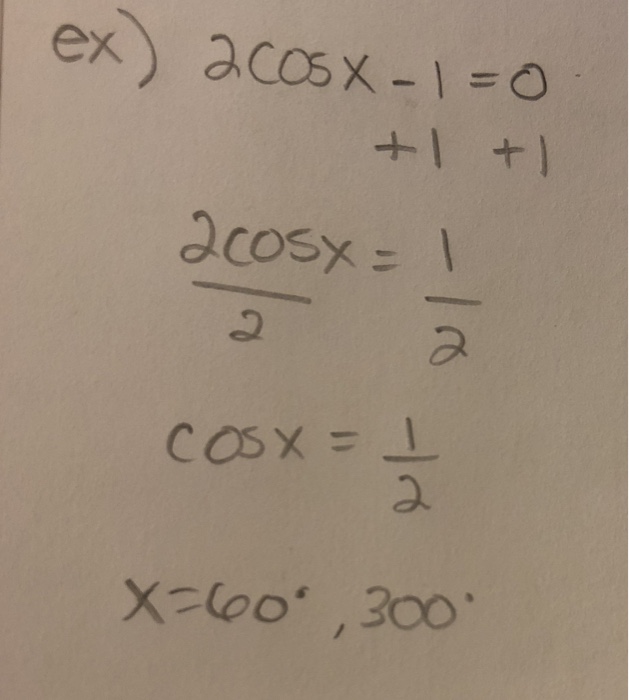 ex) 2cosx - 1 = 0
+1 +1
2cosx = 1
2 2
cosx = 1
2
x=60° , 300°